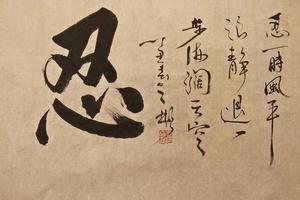 忍一時風平
浪静退一
步海阔天空
忍